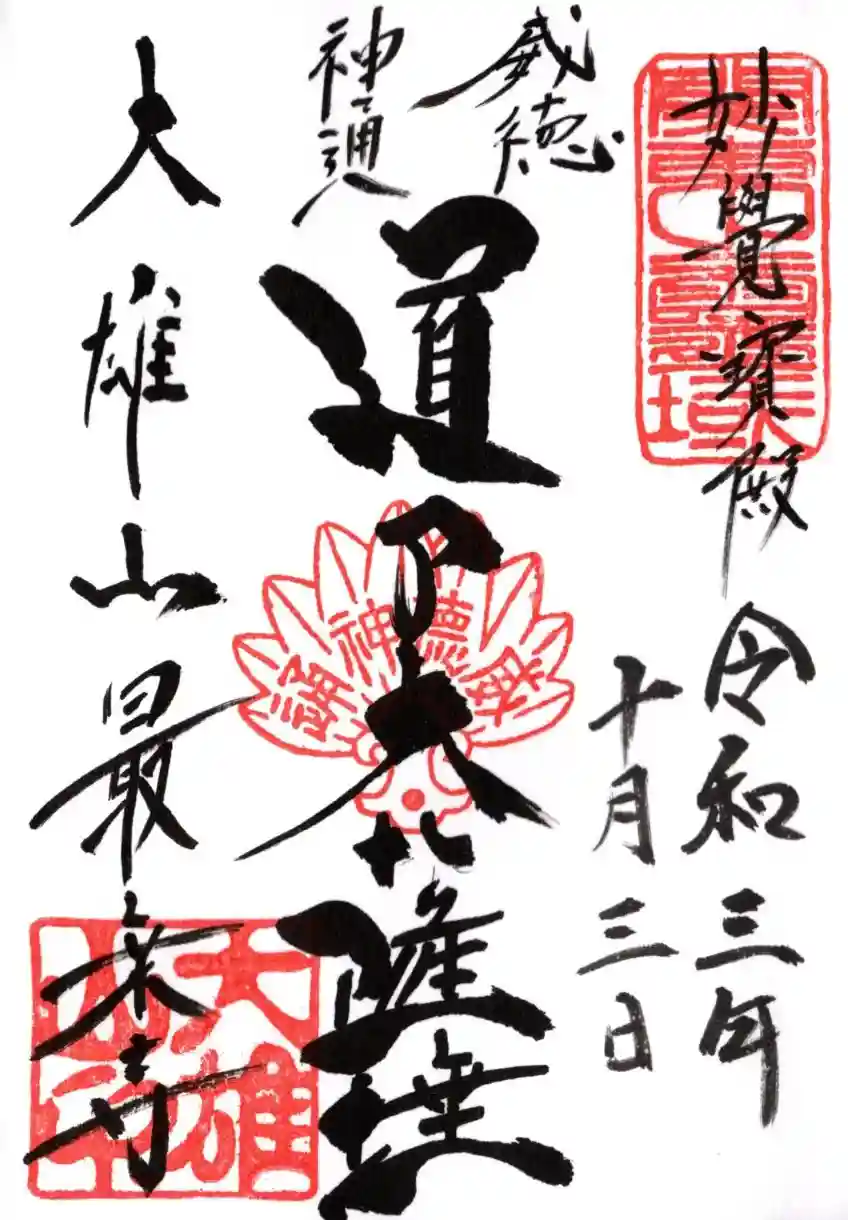 妙覺寶殿
令和三年
十月三日
威徳
神通
道了大薩埵
大雄山最乗寺
威徳神通
大雄山印